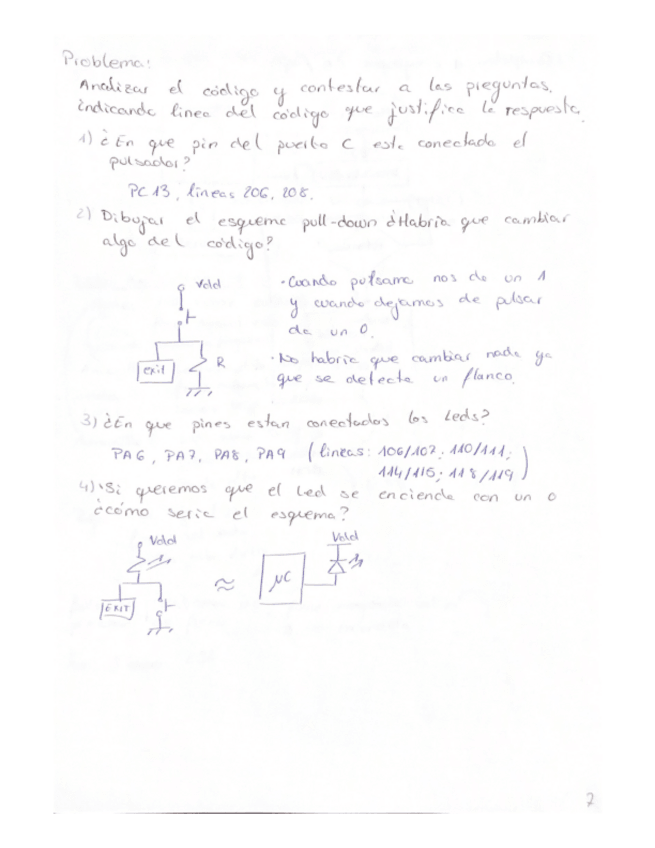 Problema:
Analizar el código y contestar a las preguntas,
indicando linea del código que justifica la respuesta.
1) ¿En que pin del puerto C esta conectado el
pulsador?
PC 13, lineas 206, 208.
2) Dibujar el esquema pull-down ¿Habría que cambiar
algo del código?
Vdd
exit
R
· Cuando pulsamo nos da un 1
y cuando dejamos de pulsar
da un 0.
· No habría que cambiar nada ya
que se detecta un flanco.
3) ¿En que pines estan conectados los Leds?
PA6, PA7, PA8, PA9 (lineas: 106/107; 110/111;
114/115; 118/119)
4) Si queremos que el Led se encienda con un 0
¿cómo seria el esquema?
Vdd
EXIT
≈
μC
Vdd
2